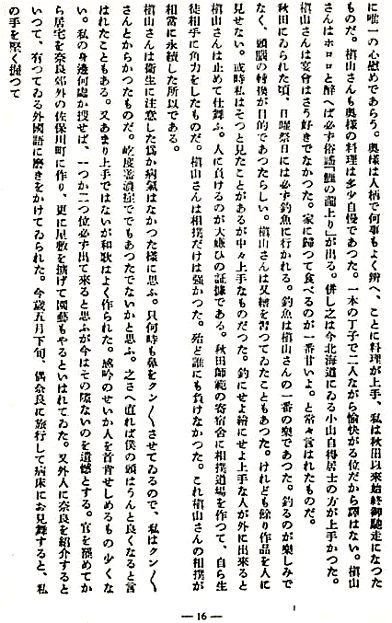 に唯一の心慰めであらう。奥様は人柄で何事もよく辨へ、ことに料理が上手、私は秋田以來始終御馳走になつた
ものだ。槇山さんも奥様の料理は多少自慢であつた。一本の丁子で二人ながら愉快がる位だから譯はない。槇山
さんはホロロと醉へば必ず俗謠「鯉の瀧上り」が出る。併し之は今北海道にゐる小山自得居士の方が上手かつた。
槇山さんは宴會はさう好きでなかつた。家に歸つて食べるのが一番甘いよ。と常々言はれたものだ。
秋田にゐられた頃、日曜祭日には必ず釣魚に行かれる。釣魚は槇山さんの一番の樂であつた。釣るのが樂しみで
なく、頭腦の轉換が目的であつたらしい。槇山さんは又繪を習つてゐたこともあつた。けれども餘り作品を人に
見せない。或時私はそつと見たことがあるが中々上手なものだつた。釣にせよ繪にせよ上手な人が外に出來ると
槇山さんは止めて仕舞ふ。人に負けるのが大嫌ひの證據である。秋田師範の寄宿舍に相撲道場を作つて、自ら生
徒相手に角力をしたものだ。槇山さんは相撲だけは强かつた。殆ど誰にも負けなかつた。これ槇山さんの相撲が
相當に永續した所以である。
槇山さんは衛生に注意した爲か病氣はなかつた樣に思ふ。只何時も鼻をクン〱させてゐるので、私はクン〱
さんとからかつたものだ。屹度蓄濃症ででもあつたでないかと思ふ。之さへ直れば僕の頭はうんと良くなると言
はれたこともある。又あまり上手ではないが和歌はよく作られた。感吟のせいか人を首肯せしめるもの少くな
い。私の身邊何處か搜せば、一つか二つ位必ず出て來ると思ふが今はその隙ないのを遺憾とする。官を罷めてか
ら居宅を奈良郊外の佐保川町に作り、更に屋敷を擴げて園藝もやるといはれてゐた。又外人に奈良を紹介すると
いつて、有つてゐる外國語に磨きをかけてゐられた。今歳五月下旬、偶奈良に旅行して病床にお見舞すると、私
の手を堅く握つて
— 16 —